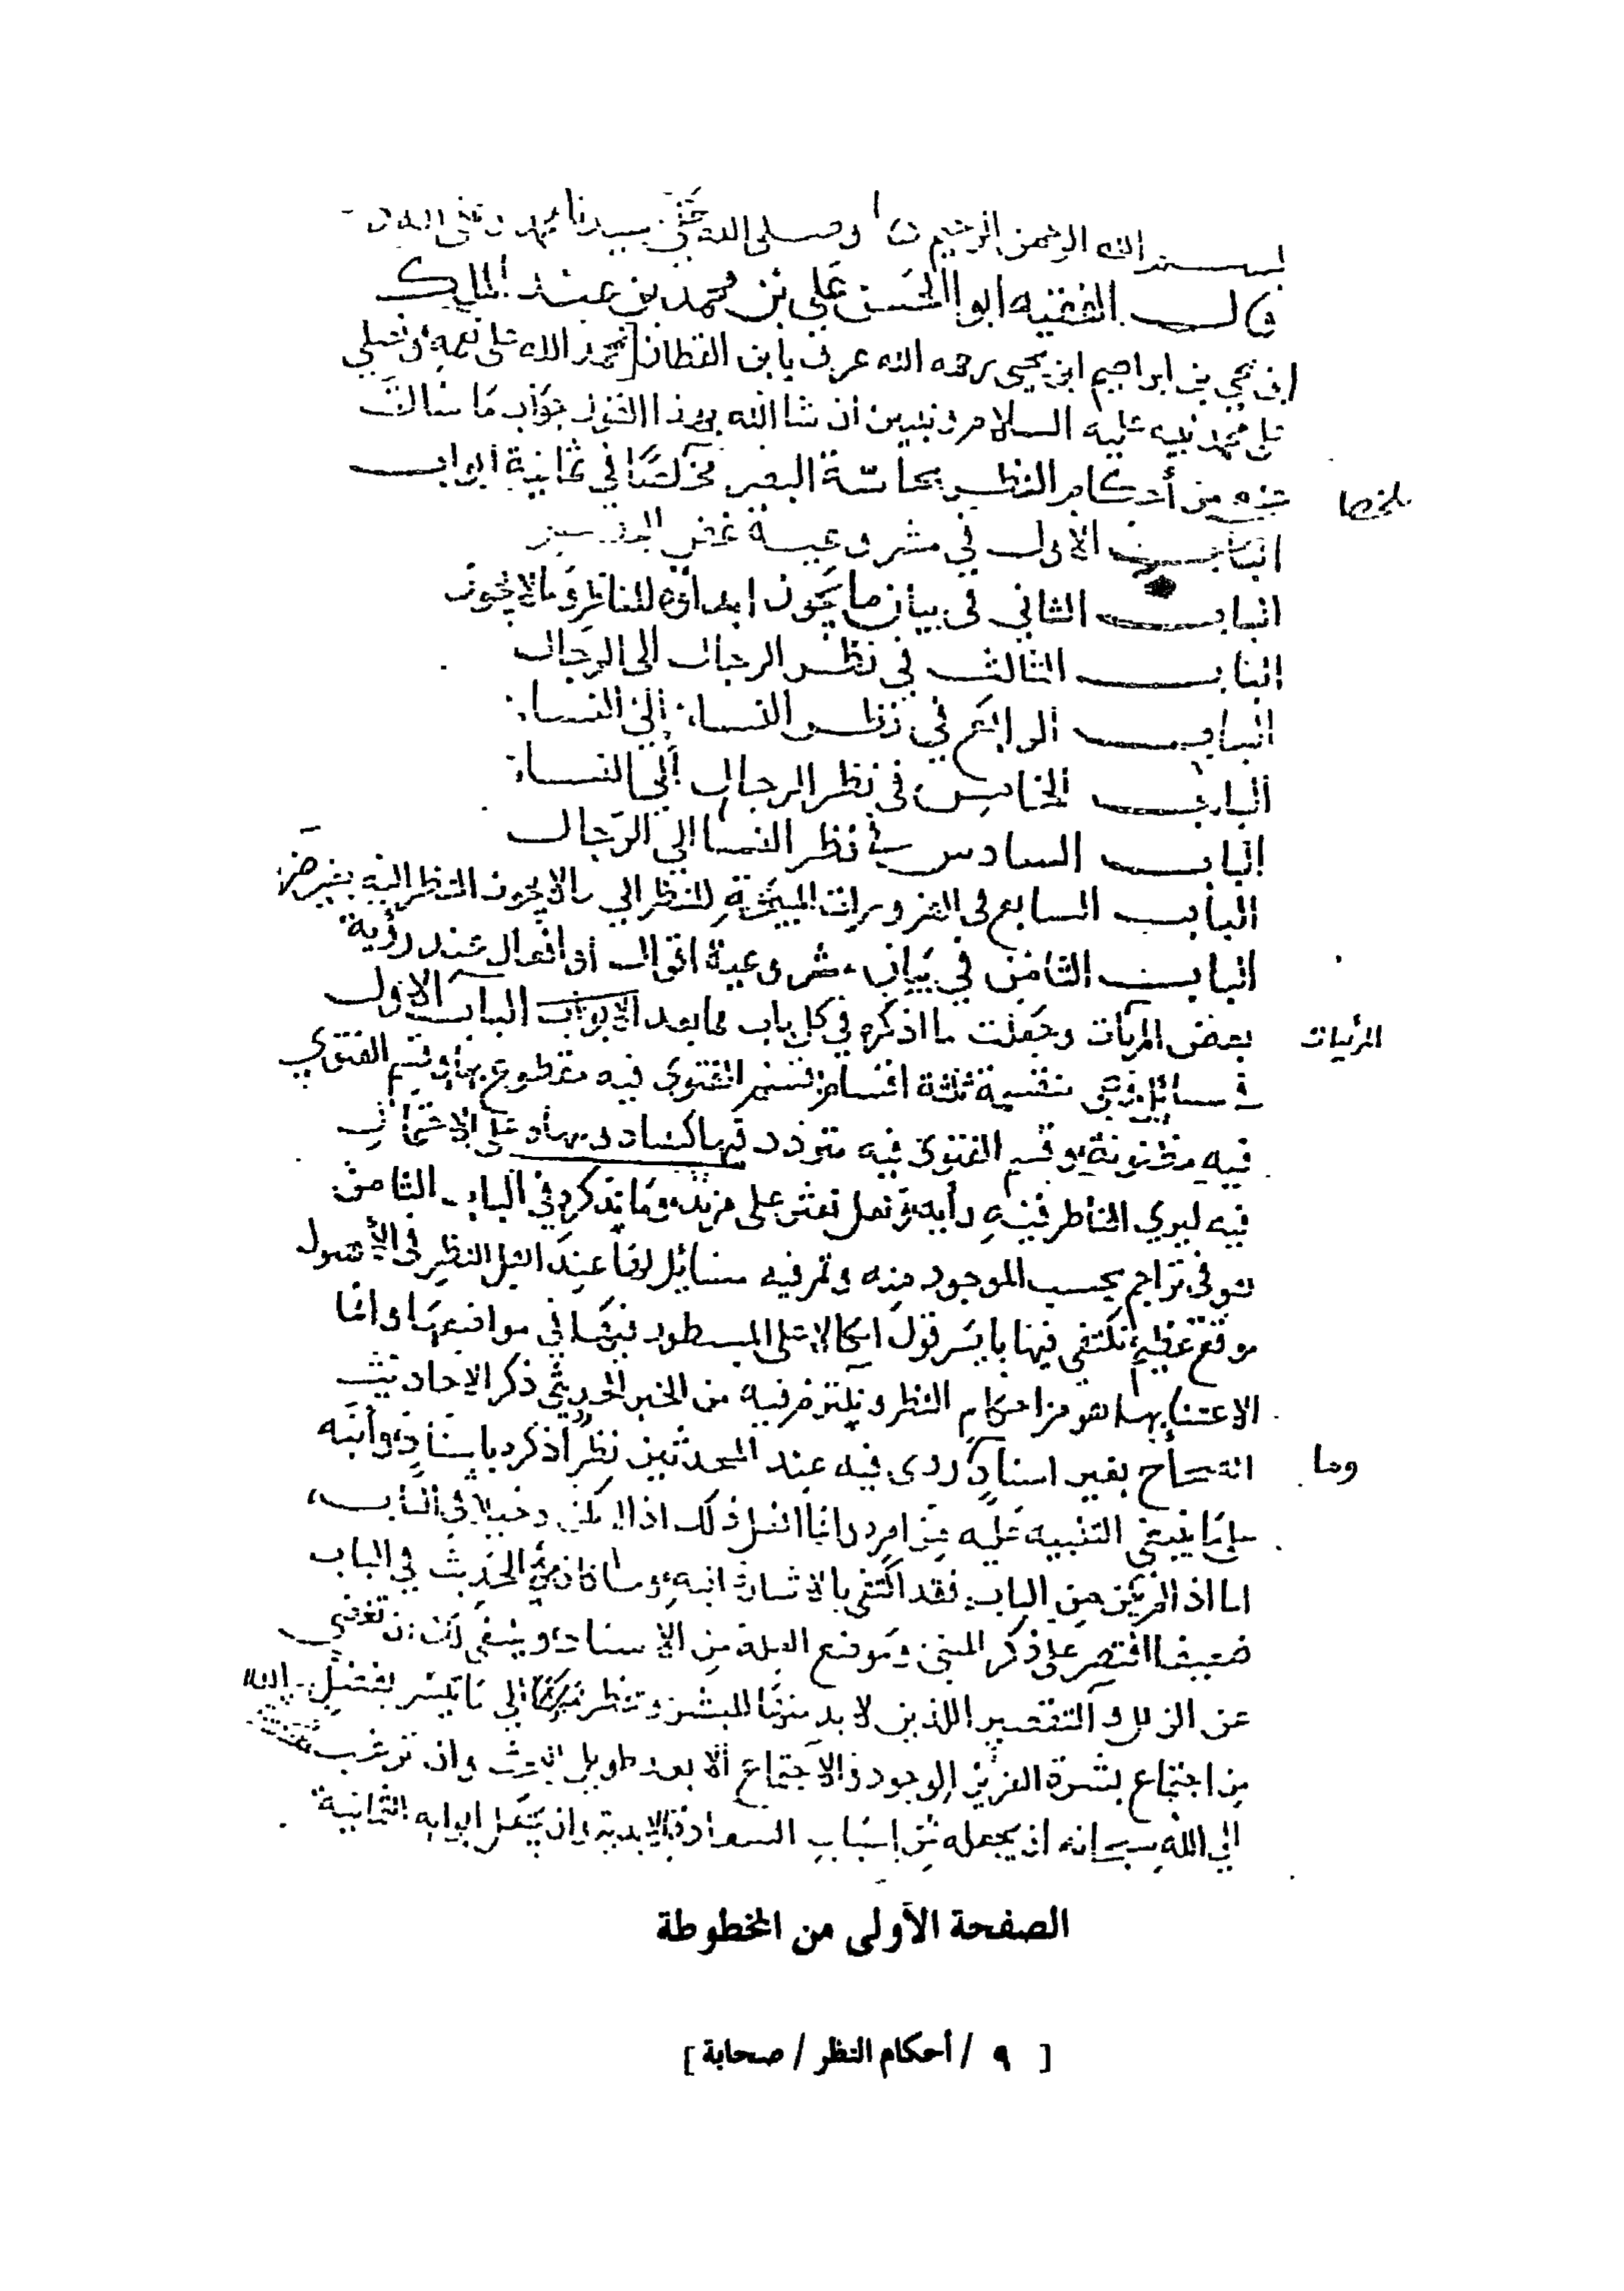 بسم الله الرحمن الرحيم وصلى الله على سيدنا محمد وعلى اله
قال الفقيه ابو الحسن علي بن محمد بن عبد الملك
ابن يحيى بن ابراهيم ابن يحيى رحمه الله عرف بابن القطان نحمد الله على نعمه ونصلي
على محمد نبيه عليه السلام ونبين ان شا الله بهذا القول جواب ما سالت
عنه من أحكام النظر بحاسّة البصر في ثمانية ابواب
ملخصا
الباب الاول في مشروعية غض البصر
الباب الثاني في بيان ما يجوز ابداؤه للناظر وما لا يجوز
الباب الثالث في نظر الرجال الى الرجال
الباب الرابع في نظر النساء إلى النساء
الباب الخامس في نظر الرجال إلى النساء
الباب السادس في نظر النسا إلى الرجال
الباب السابع في الضرورات المبيحة للنظر الي ما لا يجوز النظر اليه بغير ضر
الباب الثامن في بيان مشروعية اقوال أو افعال عند رؤية
بعض المرئات وجعلت ما اذكره في كل باب مما بعد الباب الاول
المرئيات
في مسائل وهي منقسمة ثلثة اقسام قسم الفتوى فيه مقطوع بها وقسم الفتوي
فيه مظنونة وقسم الفتوى فيه متردد فيها على الاحتمال
فيه ليري الناظر فيه رأيه ولعل نعثر على مزيد وما نذكره في الباب الثامن
هو في تراجم بحسب الموجود منه وتمر فيه مسائل لها عند اهل النظر في الأصول
موقع عظيم نكتفي فيها بايسر قول احالة على المسطور فيها في مواضعها وانما
الاعتنا بما هو من احكام النظر ونلتزم فيه من الخبر الحديثي ذكر الاحاديث
الصحاح بغير اسناد روى فيه عند المحدثين نظر أذكره باسناده وأنبه
وما
على ما ينبغي التنبيه عليه من امره وانما افعل ذلك اذا لم يكن دخيلا في الباب
اما اذا لم يكن من الباب فقد اكتفي بالاشارة اليه وما كان من الحديث في الباب
ضعيفا اقتصر على ذكر المتن وموضع العلة من الاسناد وينبغي لك ان تغضي
عن الزلل والتقصير اللذين لا بد منهما للبشر وتنظر الي ما تيسر بفضل الله
من اجتماع بشرة العزيز الوجود والاجتماع الا بعد طويل البحث وان ترغب
الي الله سبحانه ان يجعله من اسباب السعادة الابدية وان يجعل ابوابه الثمانية
الصفحة الأولى من المخطوطة
[ ٩ / أحكام النظر / صحابة ]